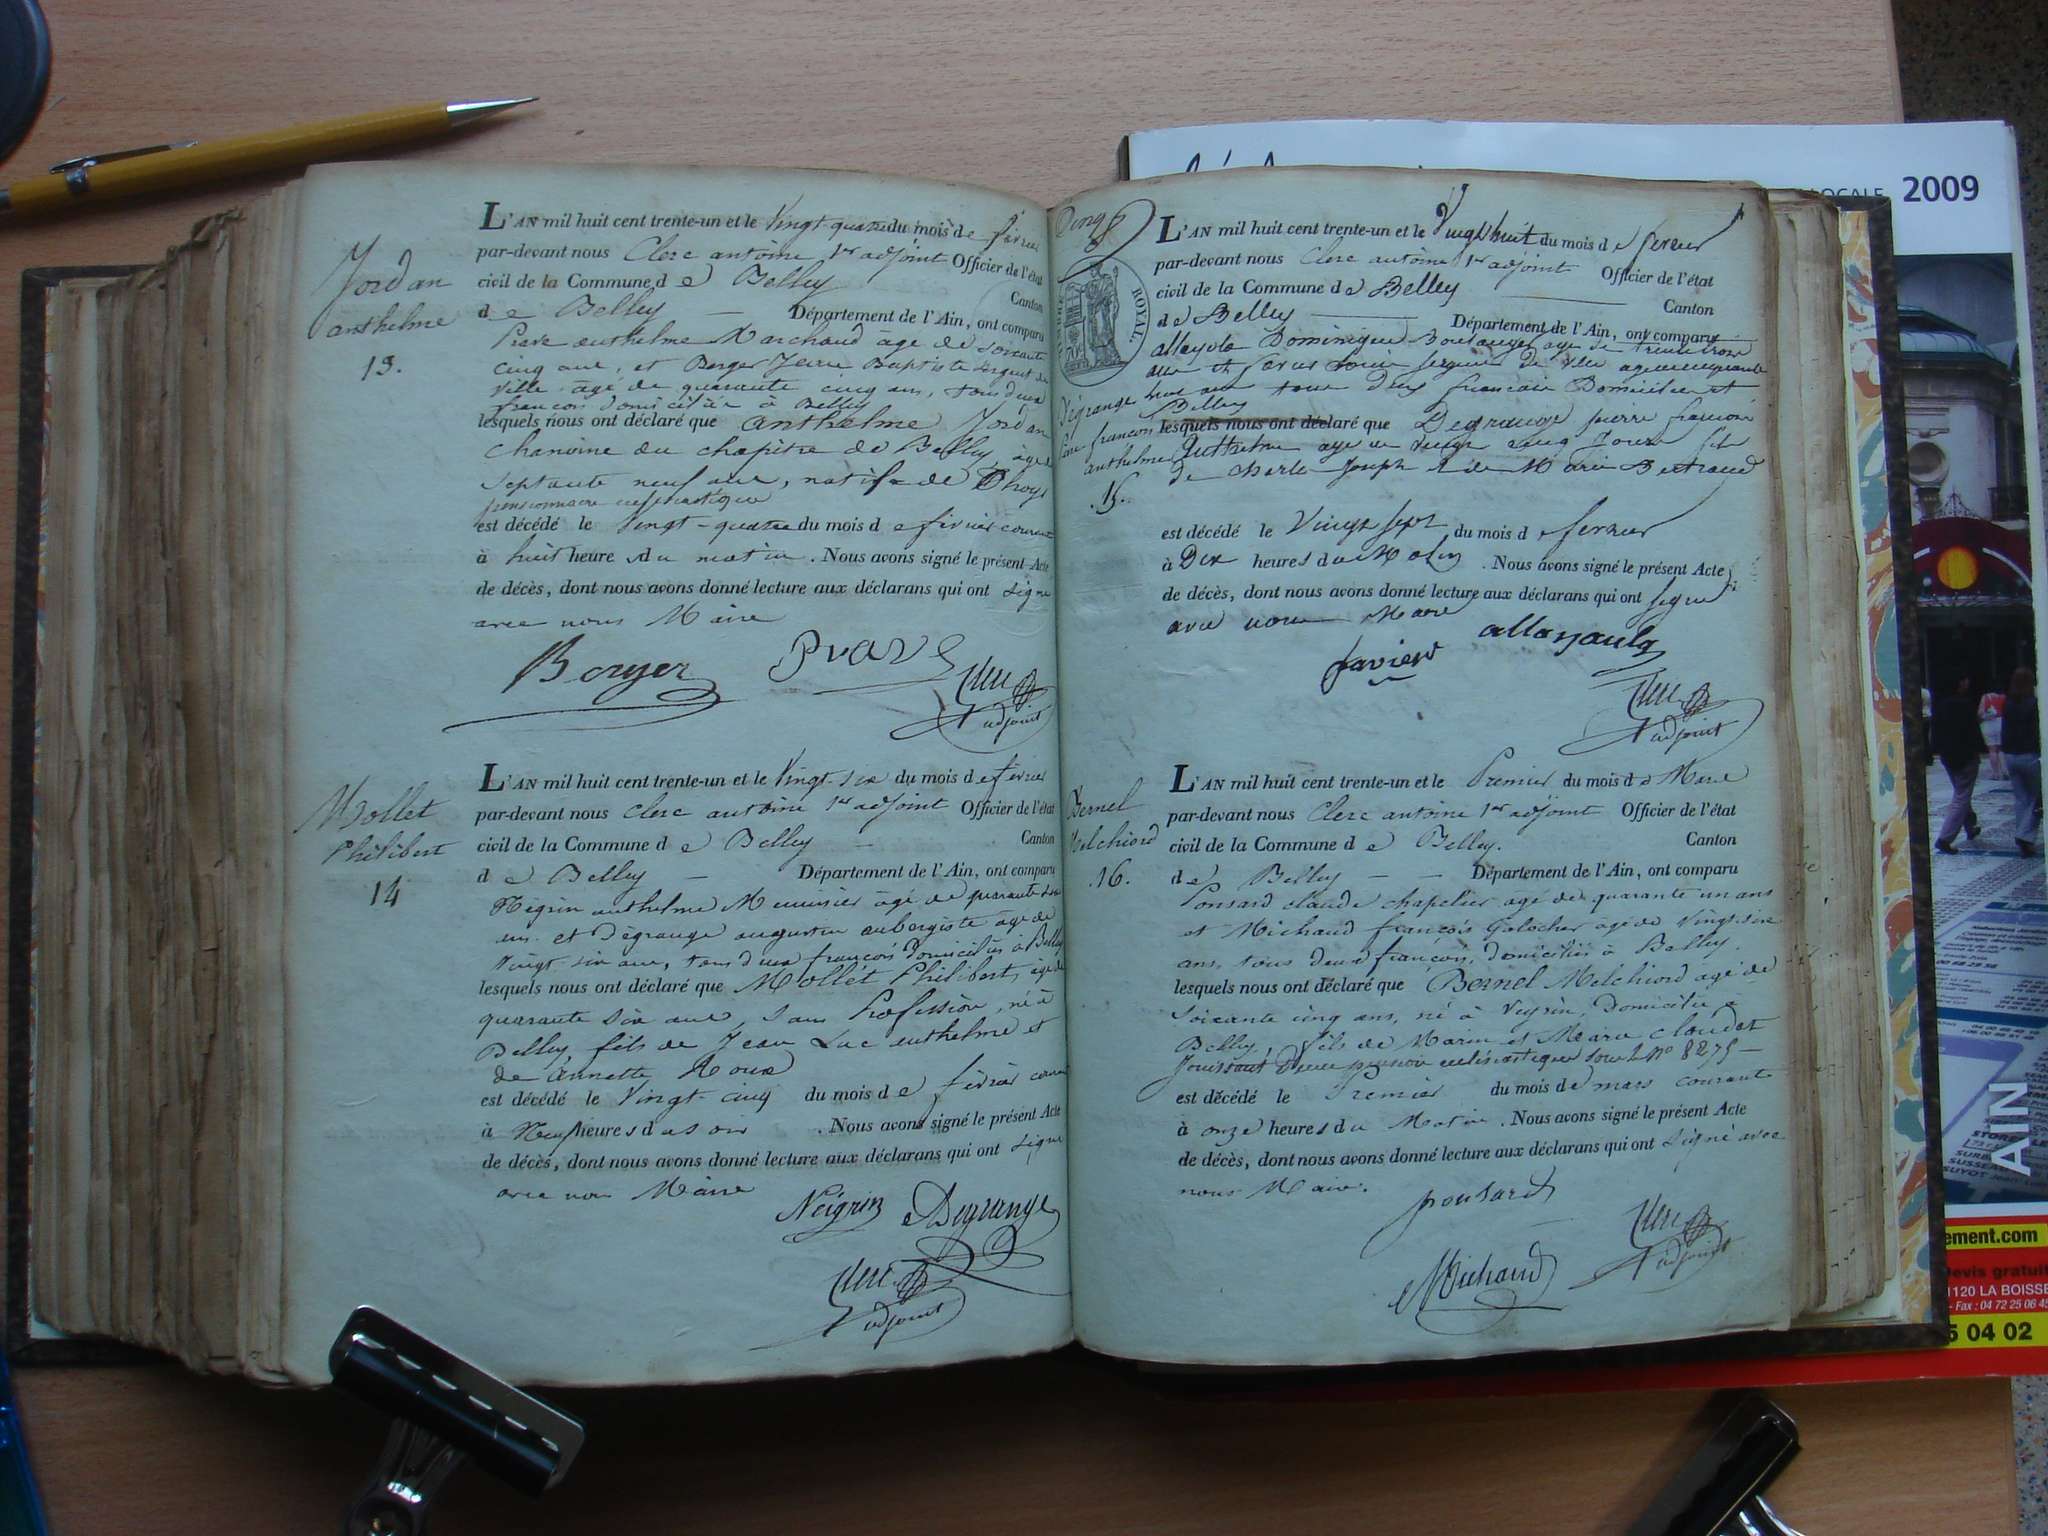 Jordan
anthelme
13.
L'AN mil huit cent trente-un et le Vingt-quatre du mois de février
par-devant nous Clerc antoine 1er adjoint Officier de l'état
civil de la Commune de Belley Canton
de Belley — Département de l'Ain, ont comparu
anthelme Marchand âgé de soixante
cinq ans, et Berger Jean Baptiste sergent de
ville âgé de quarante cinq ans, tous deux
français domiciliés à Belley
lesquels nous ont déclaré que anthelme Jordan
chanoine du chapitre de Belley, âgé de
septante neuf ans, natif de
est décédé le vingt-quatre du mois de février courant
à huit heures du matin. Nous avons signé le présent Acte
de décès, dont nous avons donné lecture aux déclarans qui ont signé
avec nous Maire
Berger Prave
Clerc
adjoint
Mollet
Philibert
14
L'AN mil huit cent trente-un et le Vingt-six du mois de février
par-devant nous Clerc antoine 1er adjoint Officier de l'état
civil de la Commune de Belley — Canton
de Belley — Département de l'Ain, ont comparu
Négrin anthelme Menuisier âgé de quarante
ans et Dégrange augustin aubergiste âgé de
Vingt-six ans, tous deux françois domiciliés à Belley
lesquels nous ont déclaré que Mollet Philibert, âgé de
quarante six ans, sans Profession, né à
Belley, fils de Jean Luc anthelme et
de annette Roux
est décédé le Vingt-cinq du mois de février courant
à Neuf heures du soir. Nous avons signé le présent Acte
de décès, dont nous avons donné lecture aux déclarans qui ont signé
avec nous Maire
Négrin Degrange
Clerc
adjoint
ROYAL
70c
Dégrange
françois
anthelme
.15.
L'AN mil huit cent trente-un et le Vingt huit du mois de fevrier
par-devant nous Clerc antoine 1er adjoint Officier de l'état
civil de la Commune de Belley — Canton
de Belley — Département de l'Ain, ont comparu
Dominique Boulanger age de trente trois
ans et sergent de ville age de quarante
huit ans tous deux francais Domicilies et
Belley
lesquels nous ont déclaré que Degrange pierre francois
Anthelme age de vingt cinq Jours fils
de Charle Joseph et de Marie Bertrand
est décédé le Vingt sept du mois de fevrier
à Dix heures du Matin. Nous avons signé le présent Acte
de décès, dont nous avons donné lecture aux déclarans qui ont signe
avec nous Maire
Clerc
adjoint
Bernel
Melchiord
.16.
L'AN mil huit cent trente-un et le Premier du mois de Mars
par-devant nous Clerc antoine 1er adjoint Officier de l'état
civil de la Commune de Belley. Canton
de Belley — — Département de l'Ain, ont comparu
Ponsard claude chapelier âgé de quarante un ans
et Michaud françois Galocher âgé de Vingt-six
ans, tous deux françois, domiciliés à Belley.
lesquels nous ont déclaré que Bernel Melchiord agé de
soixante cinq ans, né à Veyrin, Domicilié à
Belley, fils de Marin et Marie
Jouissant d'une pension ecclésiastique sous le No 8275 —
est décédé le Premier du mois de mars courant
à onze heures du Matin. Nous avons signé le présent Acte
de décès, dont nous avons donné lecture aux déclarans qui ont signé avec
nous Maire.
ponsard
Michaud
Clerc
adjoint
LOCALE 2009
AIN
ement.com
devis gratuit
1120 LA BOISSE
Fax : 04 72 25 06 45
5 04 02